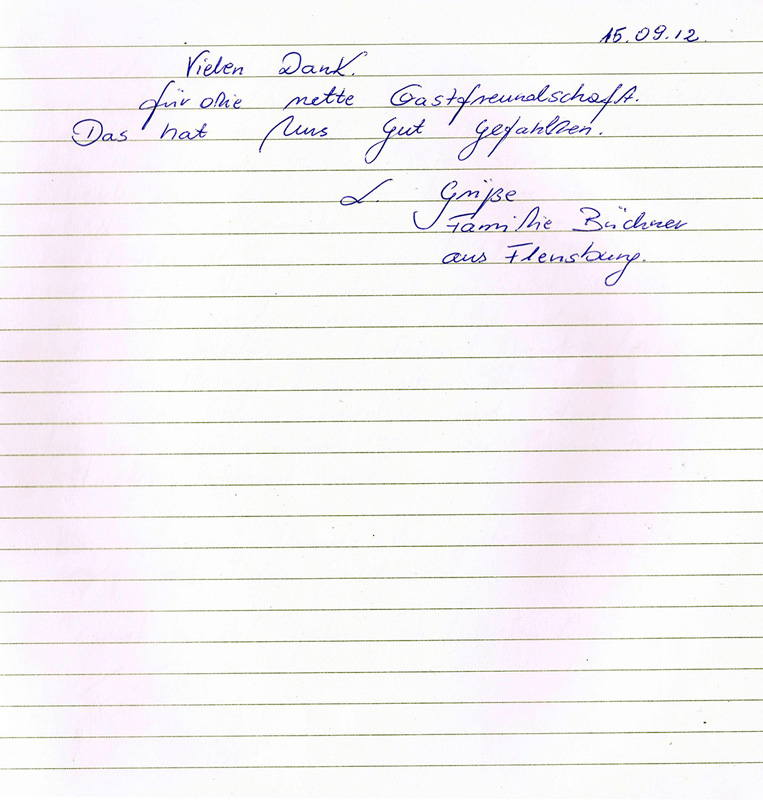 15.09.12.
Vielen Dank.
für die nette Gastfreundschaft.
Das hat uns gut gefahlen.
L. Grüße
Familie Büchner
aus Flensburg.